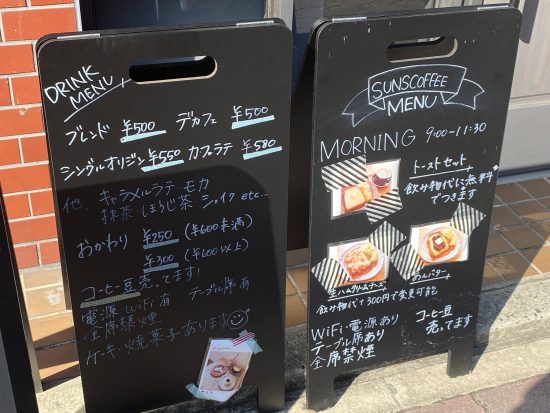 DRINK
MENU
ブレンド ¥500 デカフェ ¥500
シングルオリジン ¥550 カフェラテ ¥580
他、キャラメルラテ・モカ
抹茶・ほうじ茶 シェイク etc...
おかわり ¥250 (¥600未満)
¥300 (¥600以上)
コーヒー豆売ってます!
電源 WiFi有 テーブル席有
全席禁煙
ケーキ・焼菓子あります
SUNSCOFFEE
MENU
MORNING 9:00~11:30
トーストセット
飲み物代に無料で
つきます
生ハムクリームチーズ
あんバター
飲み物代+300円で変更可能
WiFi・電源あり
テーブル席あり
全席禁煙
コーヒー豆
売ってます